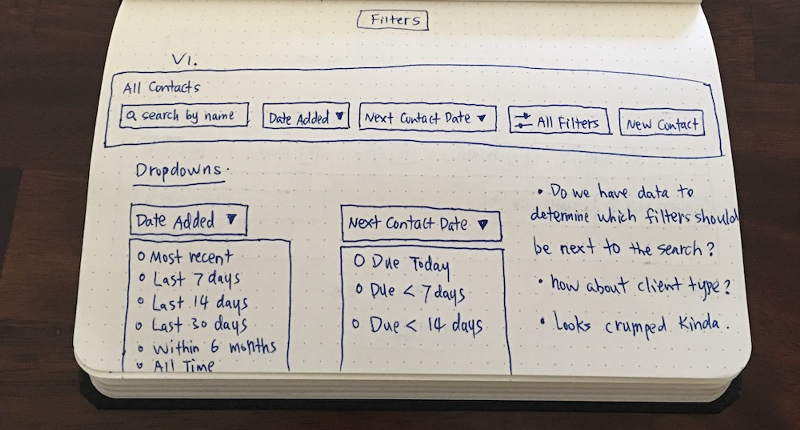 Filters
V1.
All Contacts
search by name
Date Added ▼
Next Contact Date ▼
All Filters
New Contact
Dropdowns.
Date Added ▼
Most recent
Last 7 days
Last 14 days
Last 30 days
Within 6 months
All Time
Next Contact Date ▼
Due Today
Due < 7 days
Due < 14 days
• Do we have data to
determine which filters should
be next to the search?
• how about client type?
• Looks crumped kinda.